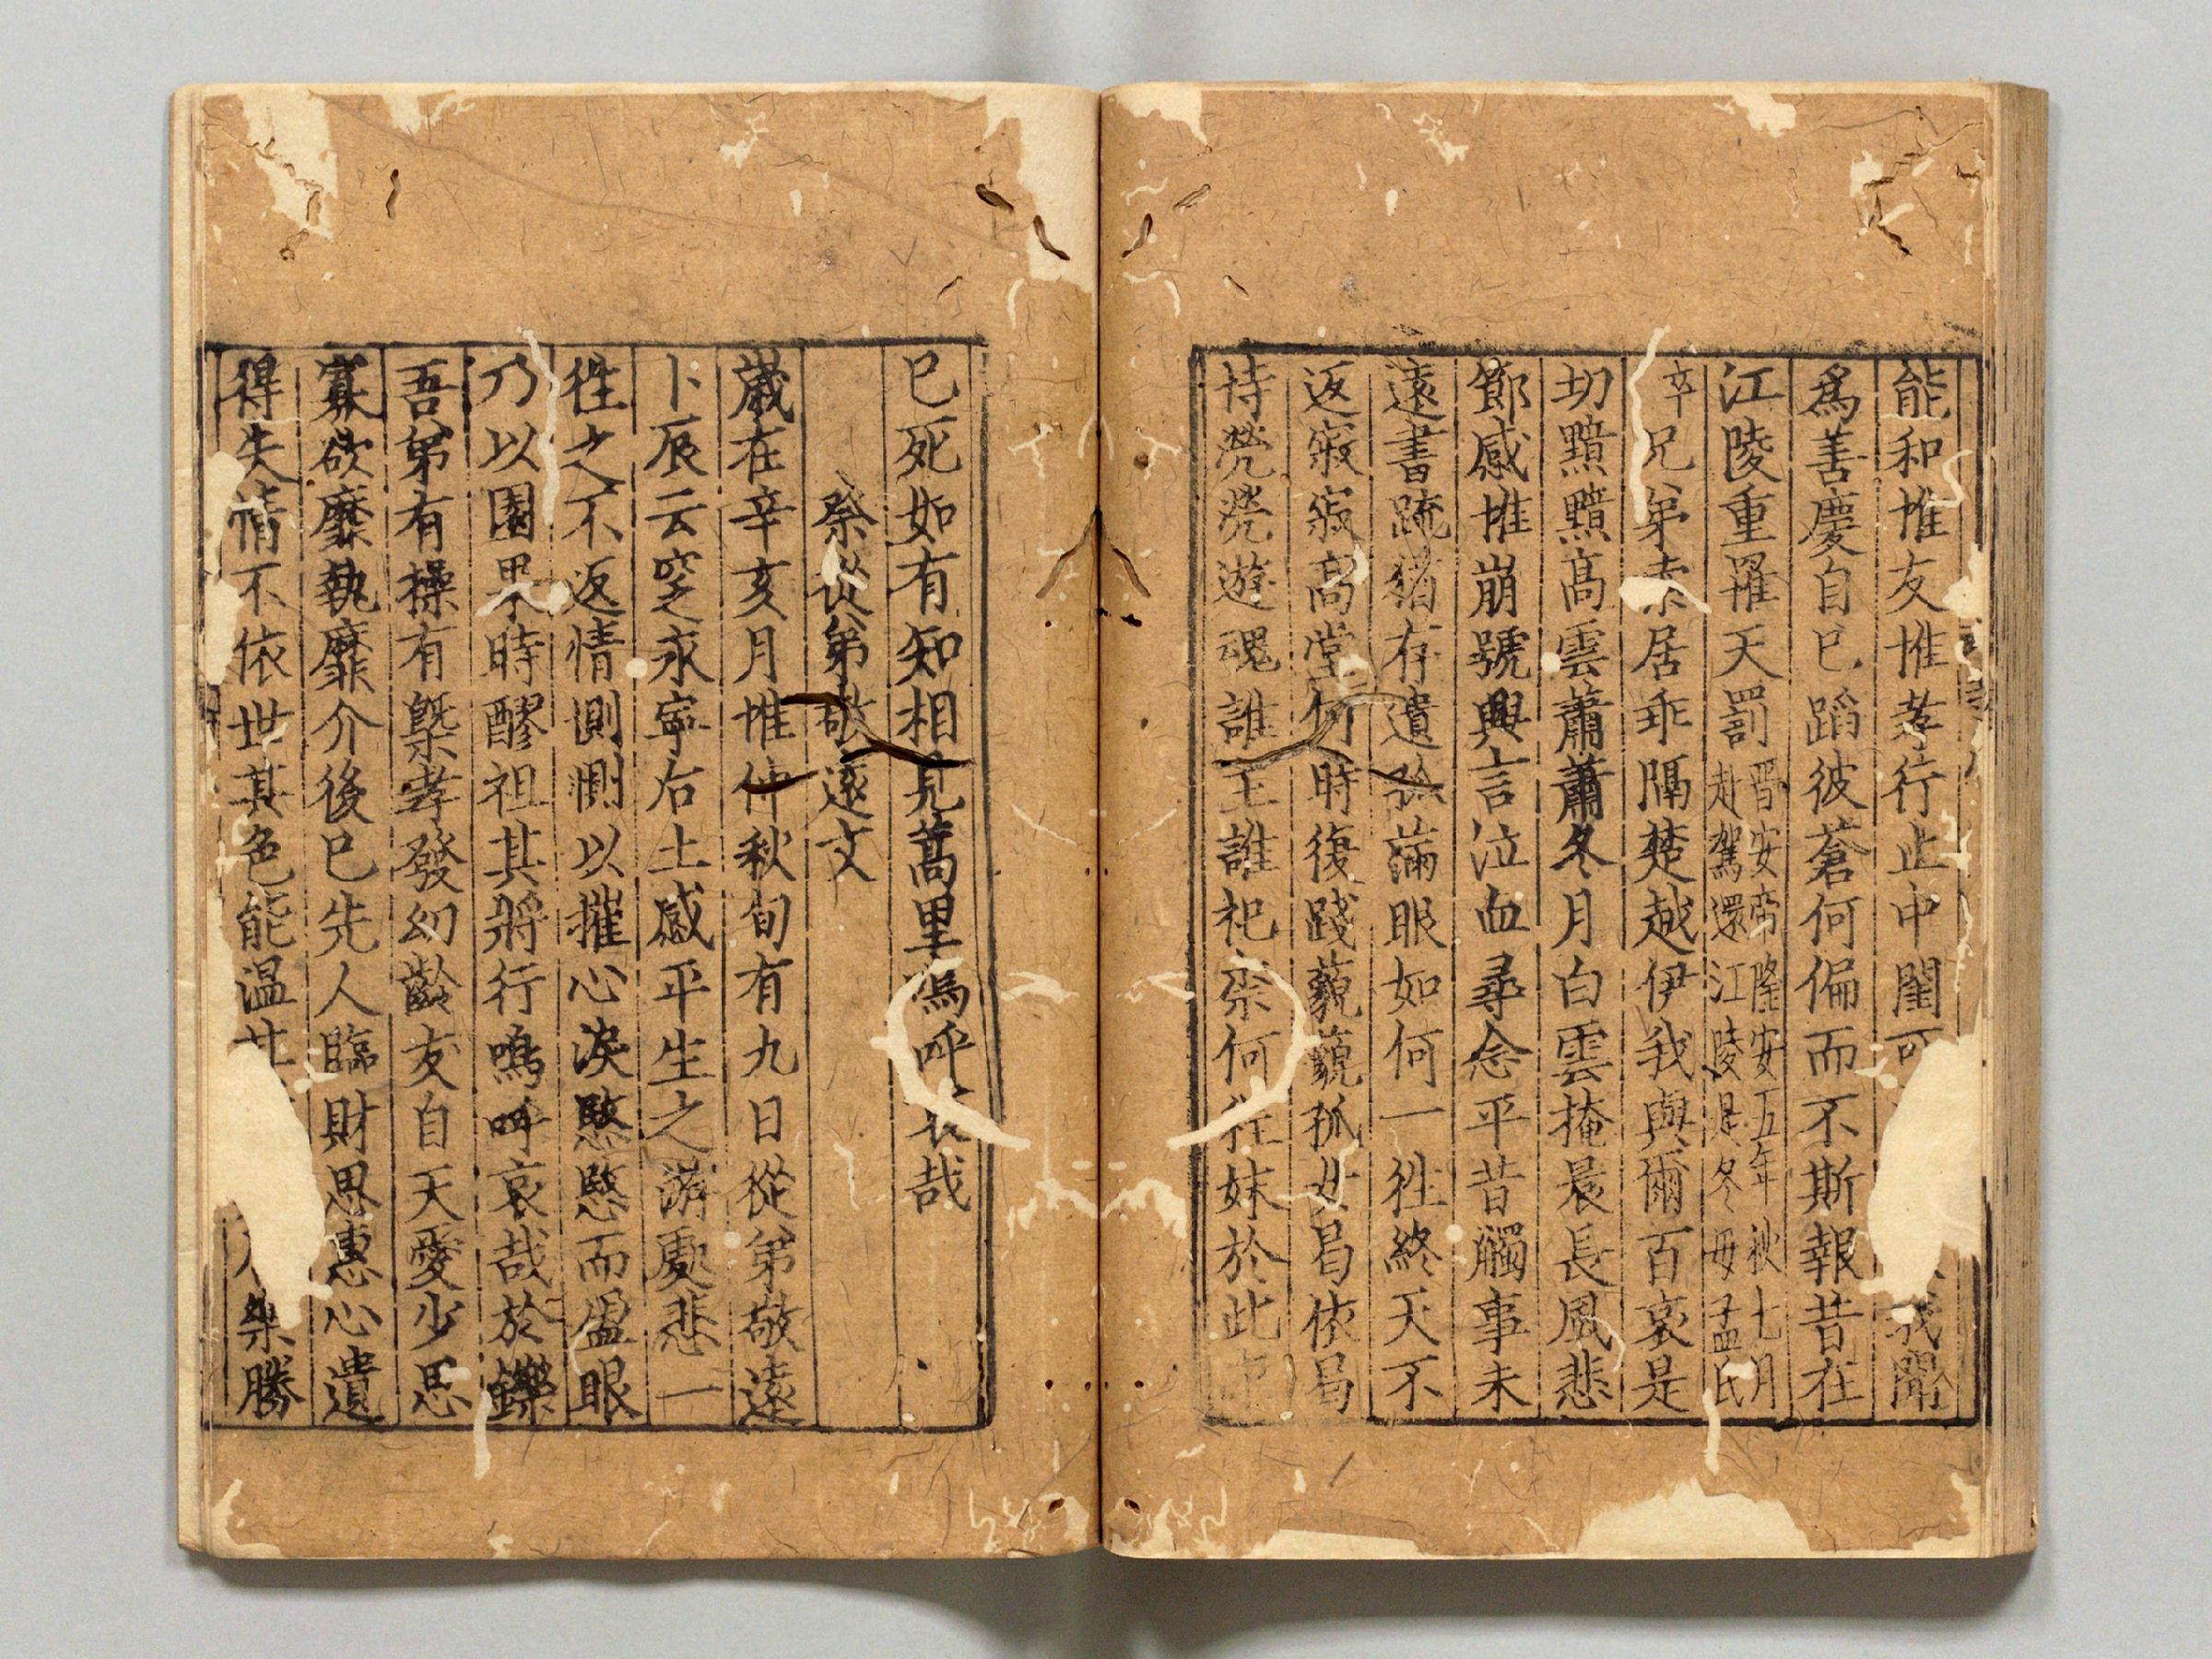 能和惟友惟孝行止中閨可 我聞
爲善慶自已蹈彼蒼何偏而不斯報昔在
江陵重罹天罰晉安帝隆安五年秋七月赴駕還江陵是冬毋孟氏
卒兄弟索居乖隔楚越伊我與爾百哀是
切黯黯高雲蕭蕭冬月白雲掩晨長風悲
節感惟崩號興言泣血尋念平昔觸事未
遠書䟽猶存遺孤滿眼如何一徃終天不
返寂寂高堂何時復踐藐藐孤女曷依曷
恃煢煢遊魂誰主誰祀柰何程妹於此
已死如有知相見蒿里嗚呼哀哉
祭從弟敬遠文
歲在辛亥月惟仲秋旬有九日從弟敬遠
卜辰云窆永寧右土感平生之游處悲一
徃之不返情惻惻以摧心淚愍愍而盈眼
乃以園果時醪祖其將行嗚呼哀哉於鑠
吾弟有操有槩孝發幼齡友自天愛少思
寡欲靡執靡介後已先人臨財思惠心遺
得失情不依世其色能温其 樂勝